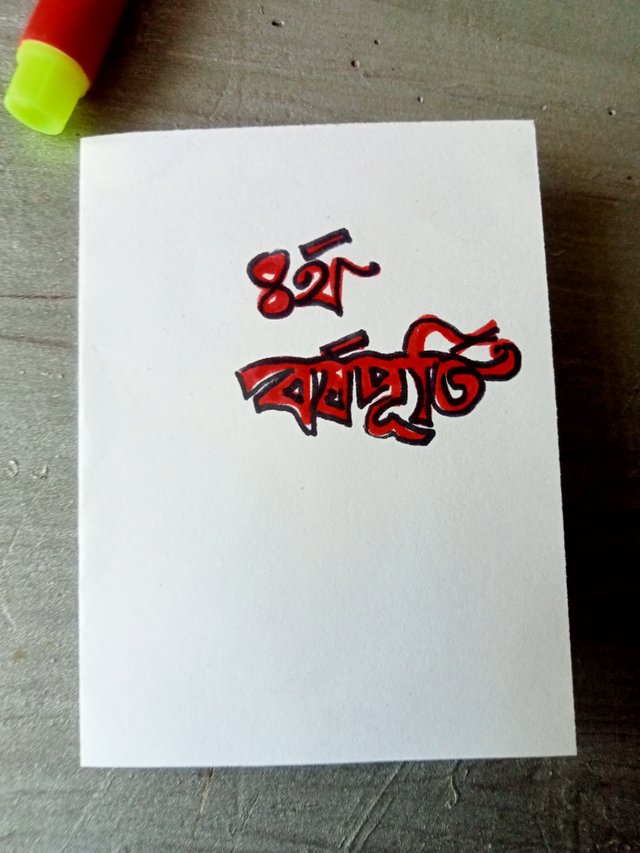 ৪র্থ
বর্ষপূর্তি